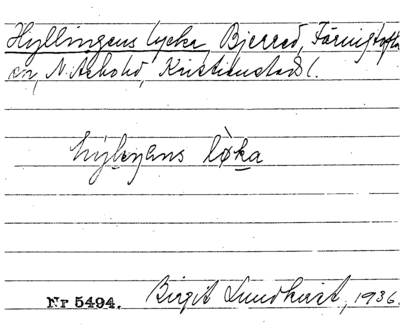 Hyllingens lycka, Bjerred, Färingtofta
sn, N. Åsbo hd, Kristianstads l.
hýleŋans lø̀ka
Nr 5494. Birgit Lundkvist, 1936.